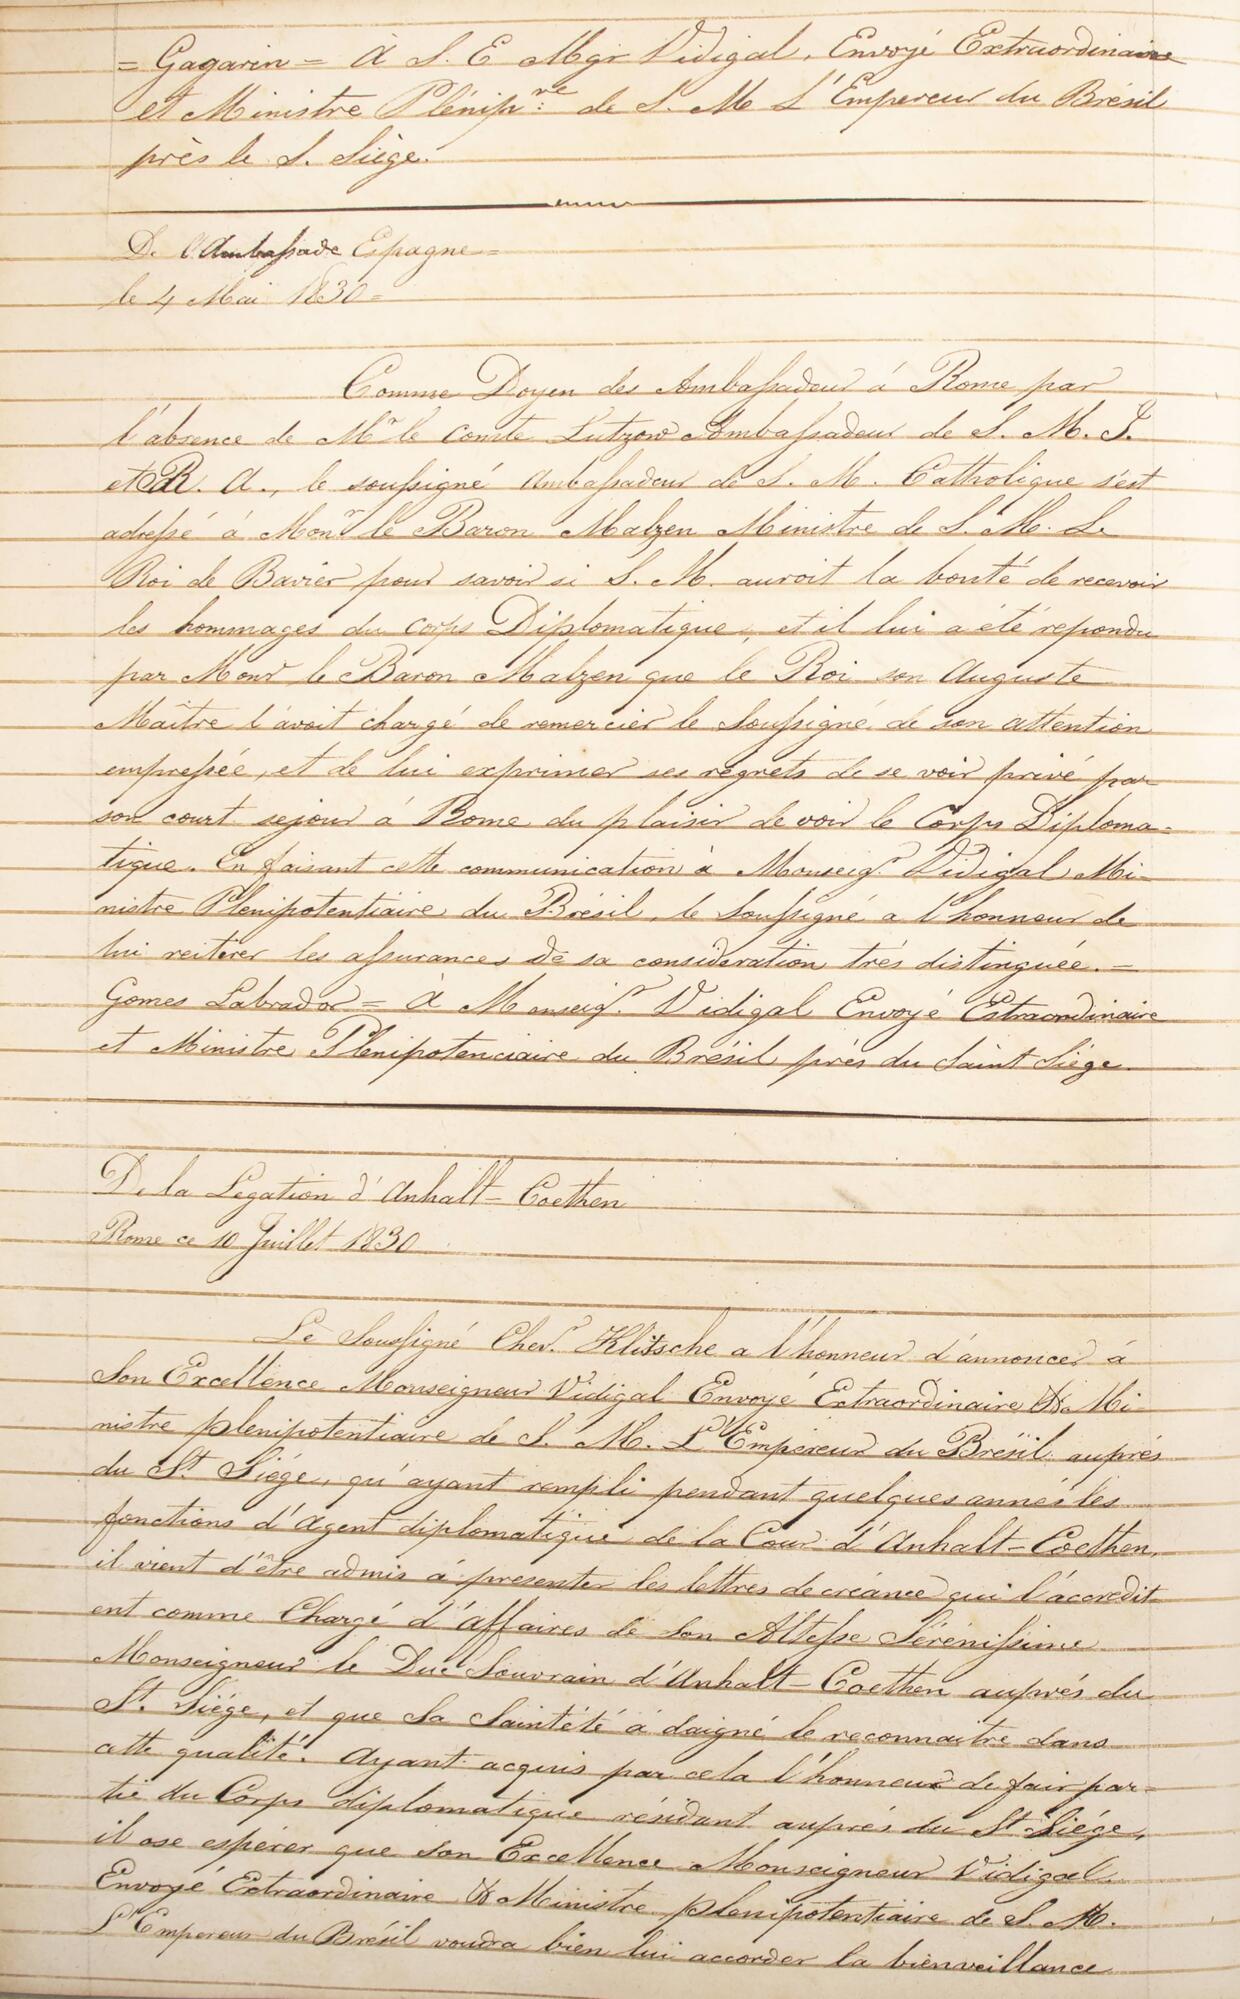 = Gagarin = À S. E Mgr Vidigal, Envoyé Extraordinaire
et Ministre Plénip.re de S. M L'Empereur du Brésil
près le S. Siège.
De l'Ambassade Espagne =
le 4 Mai 1830 =
Comme Doyen des Ambassadeurs à Rome par
l'absence de Mr le Comte Lutzow Ambassadeur de S. M. I.
et R. A., le soussigné Ambassadeur de S. M. Catholique s'est
adressé à Monr le Baron Malzen Ministre de S. M. Le
Roi de Bavier pour savoir si S. M. auroit la bonté de recevoir
les hommages du Corps Diplomatique, et il lui a été repondu
par Monr le Baron Malzen que le Roi son Auguste
Maître l'avoit chargé de remercier le Soussigné de son attention
empressée, et de lui exprimer ses regrets de se voir privé par
son court sejour à Rome du plaisir de voir le Corps Diploma-
tique. En faisant cette communication à Monseigr Vidigal Mi-
nistre Plenipotentiaire du Brésil, le Soussigné a l'honneur de
lui reiterer les assurances de sa consideration très distinguée. =
Gomes Labrador = À Monseigr Vidigal Envoyé Extraordinaire
et Ministre Plenipotenciaire du Brésil près du Saint Siége
De la Legation d'Anhalt-Coethen
Rome ce 10 Juillet 1830
Le Soussigné Chevr Klitsche a l'honneur d'annoncer à
Son Excellence Monseigneur Vidigal Envoyé Extraordinaire & Mi-
nistre plenipotentiaire de S. M. L'Empereur du Brésil auprés
du St Siége, qu'ayant rempli pendant quelques années les
fonctions d'Agent diplomatique de la Cour d'Anhalt-Coethen,
il vient d'être admis à presenter les lettres de créance qui l'accredit-
ent comme Chargé d'affaires de Son Altesse Sérénissime
Monseigneur le Duc Souvrain d'Anhalt-Coethen auprés du
St. Siége, et que Sa Saintété à daigné le reconnaitre dans
cette qualité. Ayant acquis par cela l'honneur de fair par-
tie du Corps diplomatique résidant auprés du St Siége,
il ose espérer que Son Excellence Monseigneur Vidigal
Envoyé Extraordinaire & Ministre plenipotentiaire de S. M.
L'Empereur du Brésil voudra bien lui accorder la bienveillance